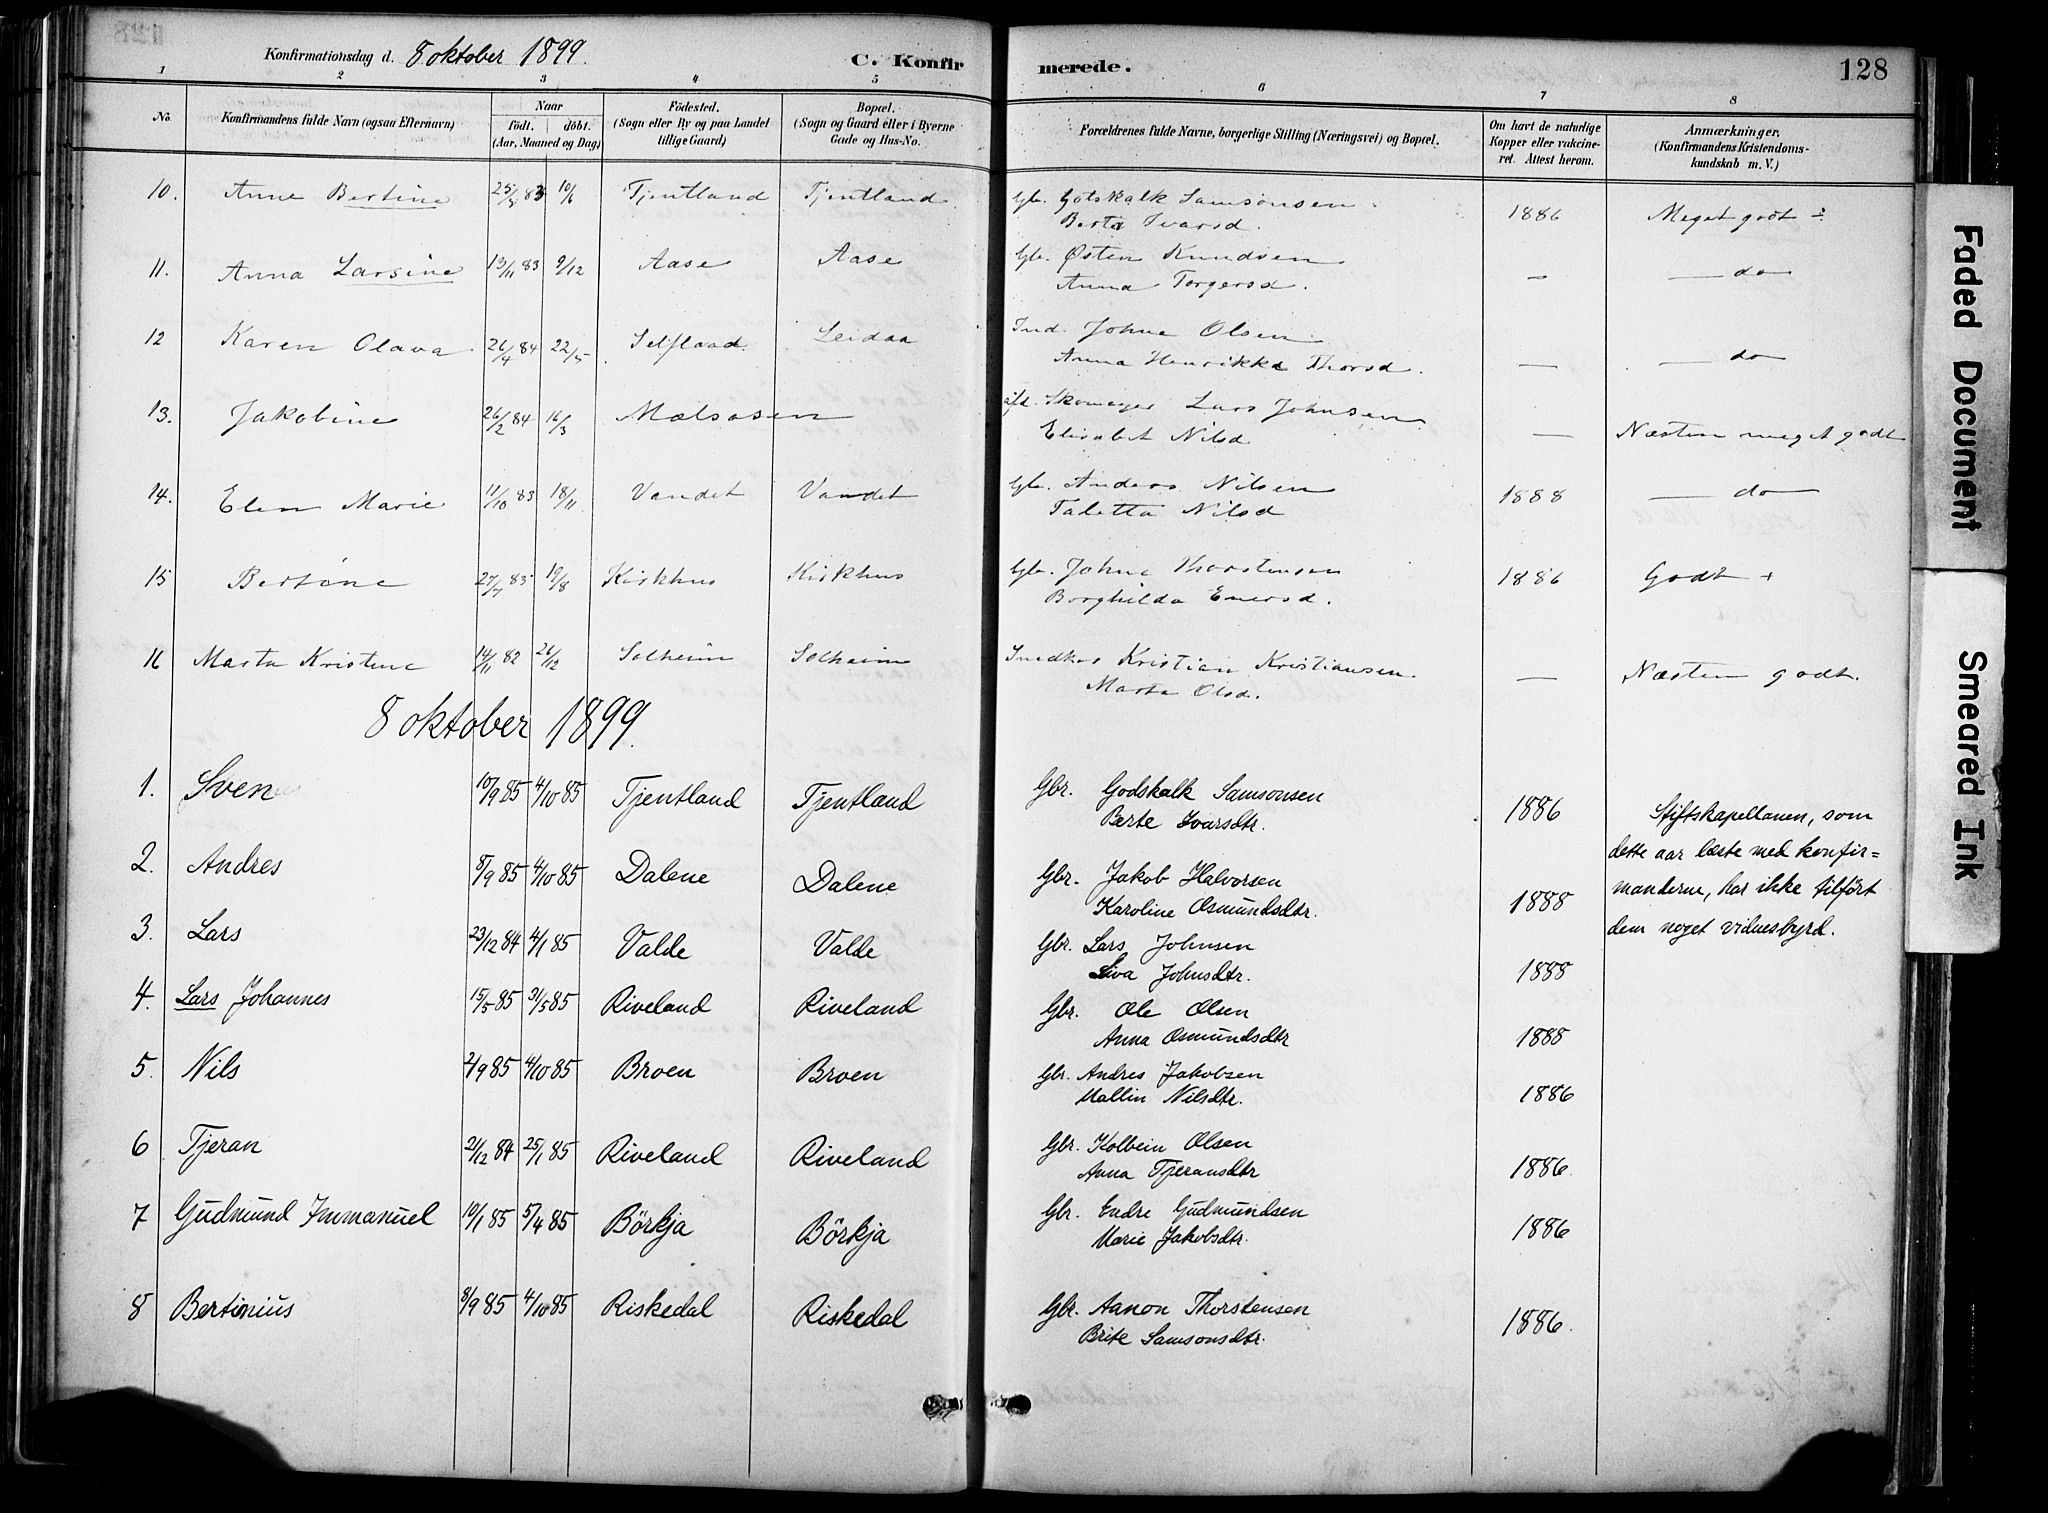 Konfirmationsdag d. 8 oktober 1899. C. Konfirmerede. 128
1 2 3 4 5 6 7 8
No. Konfirmandens fulde Navn (ogsaa Efternavn) Naar født. døbt. (Aar, Maaned og Dag) Fødested. (Sogn eller By og paa Landet tillige Gaard) Bopæl. (Sogn og Gaard eller i Byerne Gade og Hus-No. Forældrenes fulde Navne, borgerlige Stilling (Næringsvei) og Bopæl. Om havt de naturlige Kopper eller vakcineret. Attest herom. Anmærkninger. (Konfirmandens Kristendomskundskab m. V.)
10. Anne Bertine 83 10/6 Tjentland Tjentland Gb. Gotskalk Samsonsen 1886 Meget godt ÷
Berta Ivarsd.
11. Anna Larsine 13/11 83 9/12 Aase Aase Gb. Østen Knudsen — — do
Anna Torgersd.
12 Karen Olava 26/4 84 22/5 Selflaad Leidaa Ind. Johne Olsen
Anna Henrikka Thorsd. — — do
13. Jakobine 26/2 84 16/3 Mælsosen Skomager Lars Johnsen
Elisabet Nilsd — Næsten meget godt
14. Elen Marie 11/10 83 18/11 Vandet Vandet Gb. Anders Nilsen 1888 — do
Taletta Nilsd
15 Bertine 27/7 83 19/8 Kirkhus Kirkhus Gb. Johne Thorstensen 1886 Godt +
Borghilda Enersd.
16 Marta Kristine 14/11 82 26/12 Solheim Solheim Kristian Kristiansen — Næsten godt.
Marta Olsd.
8 oktober 1899.
1. Sven 10/9 85 4/10 85 Tjentland Tjentland Gbr. Godskalk Samsonsen 1886 Stiftskapellanen, som
Berte Ivarsdtr. dette aar læste med konfir=
2. Andres 8/9 85 4/10 85 Dalene Dalene Gbr. Jakob Halvorsen manderne, har ikke tilført
Karoline Osmundsdtr. 1888 dem noget vidnesbyrd.
3. Lars 23/12 84 4/1 85 Valde Valde Gbr. Lars Johnsen
Siva Johnsdtr. 1888
4. Lars Johannes 15/5 85 31/5 85 Riveland Riveland Gbr. Ole Olsen
Anna Osmundsdtr 1888
5. Nils 2/9 85 4/10 85 Broen Broen Gbr. Andres Jakobsen
Mallin Nilsdtr. 1886
6 Tjeran 21/12 84 25/1 85 Riveland Riveland Gbr. Kolbein Olsen
Anna Tjeransdtr 1886.
7 Gudmund Immanuel 10/1 85 5/4 85 Börkja Börkja Gbr. Endre Gudmundsen 1886
Marie Jakobsdtr.
8 Bertinius 8/9 85 4/10 85 Riskedal Riskedal Gbr. Aanon Thorstensen 1886.
Brite Samsonsdtr.
Faded Document
Smeared Ink